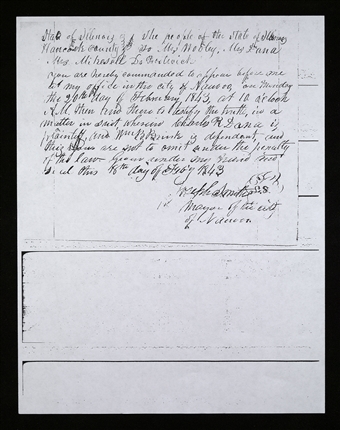 State of Illinois } The people of the State of Illinois
Hancock County } To Mrs Woolley, Mrs Dana
Mrs
you are hereby commanded to appear before me
at my office in the city of Nauvoo, on Monday
the 20th day of February 1843, at 10 o clock
A. M. then and there to testify the truth, in a
matter in suit wherein Charles R. Dana is
plaintiff, and Wm Brink is defendant, and
this you are not to omit under the penalty
of the law. Given under my hand and
seal this 18th day of Feby 1843
Joseph Smith
Mayor of the city
of Nauvoo